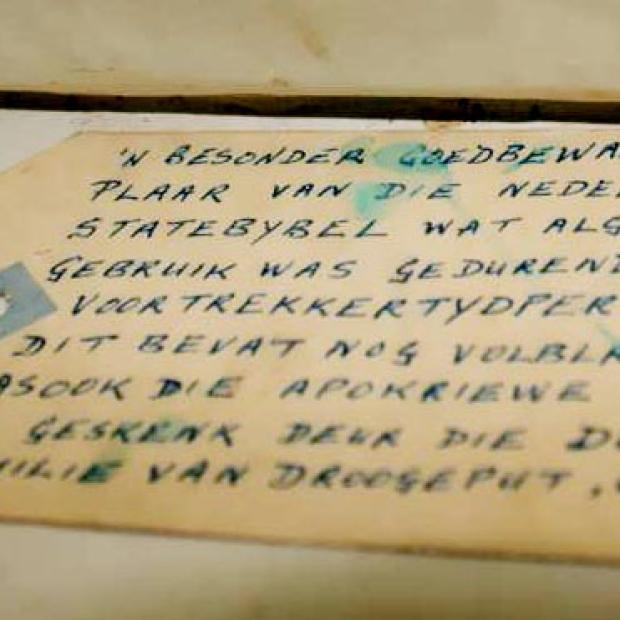 'N BESONDER GOEDBEWA
PLAAR VAN DIE NEDE
STATEBYBEL WAT ALG
GEBRUIK WAS GEDUREND
VOORTREKKERTYDPER
DIT BEVAT NOG VOLBLA
ASOOK DIE APOKRIEWE
GESKENK DEUR DIE D
MILIE VAN DROOGEPUT,